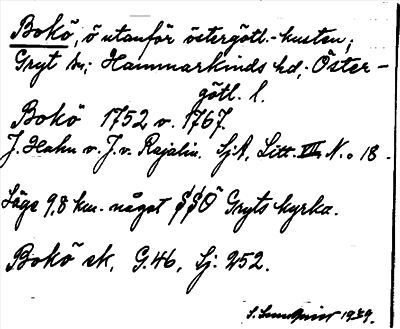 Bokö, ö utanför östergötl.-kusten;
Gryt sn; Hammarkinds hd; Öster-
götl. l.
Bokö 1752 o. 1767.
J. Hahn o. J. v. Rajalin. SjA, Litt. VIII No 18.
Läge 9,8 km. något SSÖ Gryts kyrka.
Bokö sk, G.46, Sj. 252.
S. 19